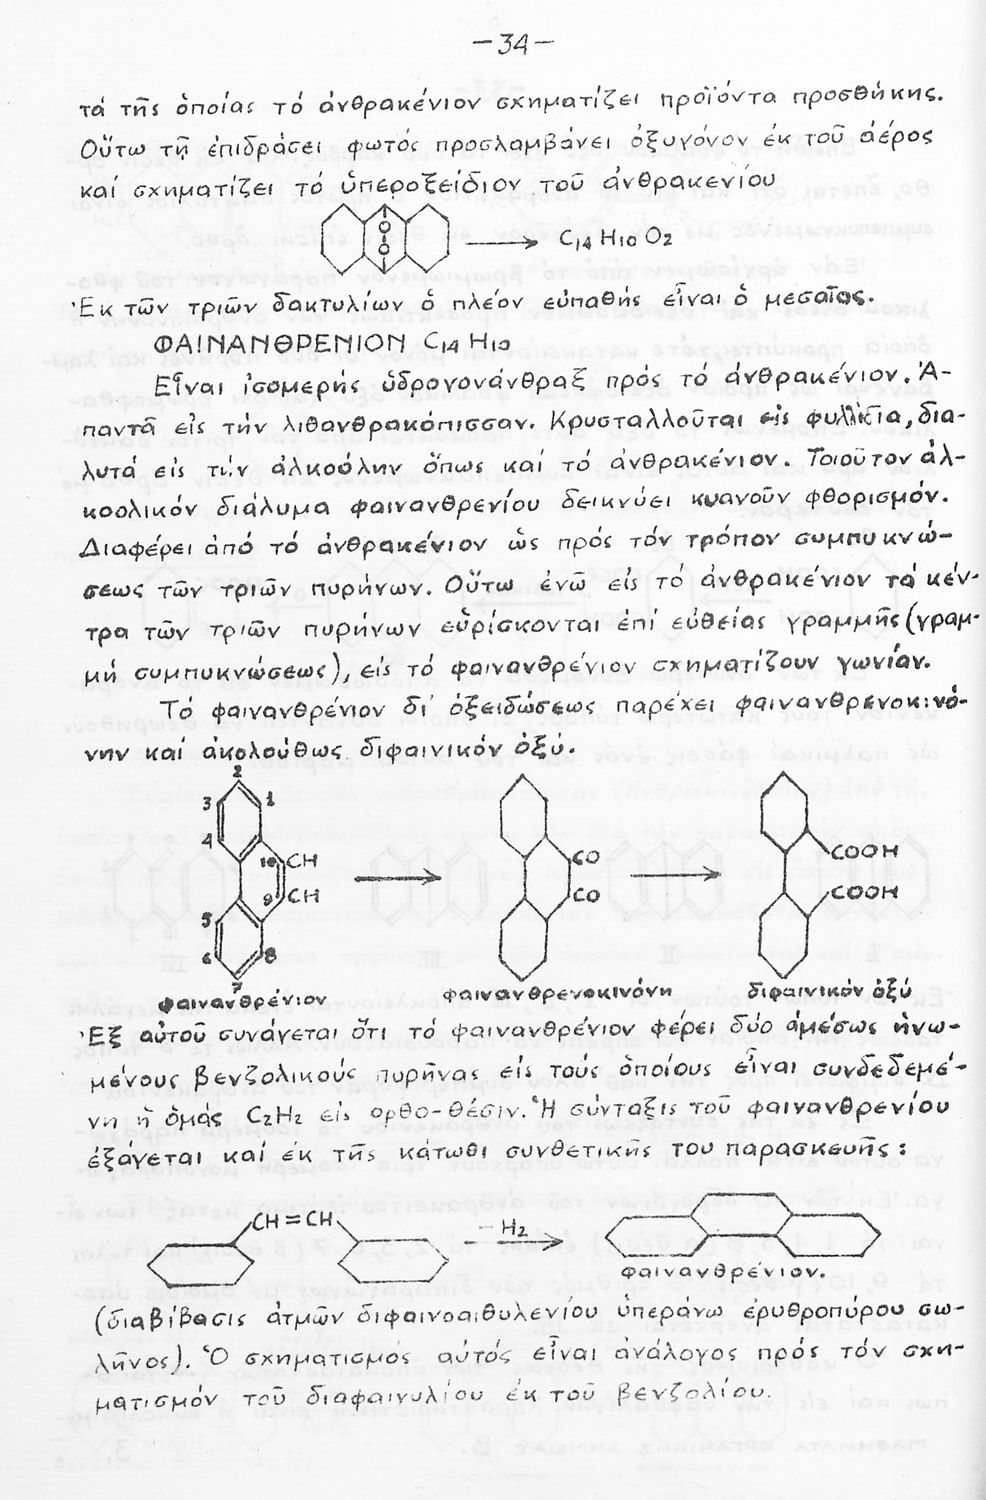 -34-
τά τῆς ὁποίας τό ἀνθρακένιον σχηματίζει προϊόντα προσθήκης.
Οὕτω τῇ ἐπιδράσει φωτός προσλαμβάνει ὀξυγόνον ἐκ τοῦ ἀέρος
καί σχηματίζει τό ὑπεροξείδιον τοῦ ἀνθρακενίου
O
O
C14 H10 O2
Ἐκ τῶν τριῶν δακτυλίων ὁ πλέον εὐπαθής εἶναι ὁ μεσαῖος.
ΦΑΙΝΑΝΘΡΕΝΙΟΝ C14 H10
Εἶναι ἰσομερής ὑδρογονάνθραξ πρός τό ἀνθρακένιον. Ἀ-
παντᾶ εἰς τήν λιθανθρακόπισσαν. Κρυσταλλοῦται εἰς φυλλίτια, δια-
λυτά εἰς τήν ἀλκοόλην ὅπως καί τό ἀνθρακένιον. Τοιοῦτον ἀλ-
κοολικόν διάλυμα φαινανθρενίου δεικνύει κυανοῦν φθορισμόν.
Διαφέρει ἀπό τό ἀνθρακένιον ὡς πρός τόν τρόπον συμπυκνώ-
σεως τῶν τριῶν πυρήνων. Οὕτω ἐνῶ εἰς τό ἀνθρακένιον τά κέν-
τρα τῶν τριῶν πυρήνων εὑρίσκονται ἐπί εὐθείας γραμμῆς (γραμ-
μή συμπυκνώσεως), εἰς τό φαινανθρένιον σχηματίζουν γωνίαν.
Τό φαινανθρένιον δι' ὀξειδώσεως παρέχει φαινανθρενοκινό-
νην καί ἀκολούθως διφαινικόν ὀξύ.
2
3 1
4
10 CH CO COOH
9 CH CO COOH
5
6 8
7
φαινανθρένιον φαινανθρενοκινόνη διφαινικόν ὀξύ
Ἐξ αὐτοῦ συνάγεται ὅτι τό φαινανθρένιον φέρει δύο ἀμέσως ἡνω-
μένους βενζολικούς πυρῆνας εἰς τούς ὁποίους εἶναι συνδεδεμέ-
νη ἡ ὁμάς C2H2 εἰς ορθο-θέσιν. Ἡ σύνταξις τοῦ φαινανθρενίου
ἐξάγεται καί ἐκ τῆς κάτωθι συνθετικῆς του παρασκευῆς:
CH=CH - H2
φαινανθρένιον.
(διαβίβασις ἀτμῶν διφαινοαιθυλενίου ὑπεράνω ἐρυθροπύρου σω-
λῆνος). Ὁ σχηματισμός αὐτός εἶναι ἀνάλογος πρός τόν σχη-
ματισμόν τοῦ διαφαινυλίου ἐκ τοῦ βενζολίου.